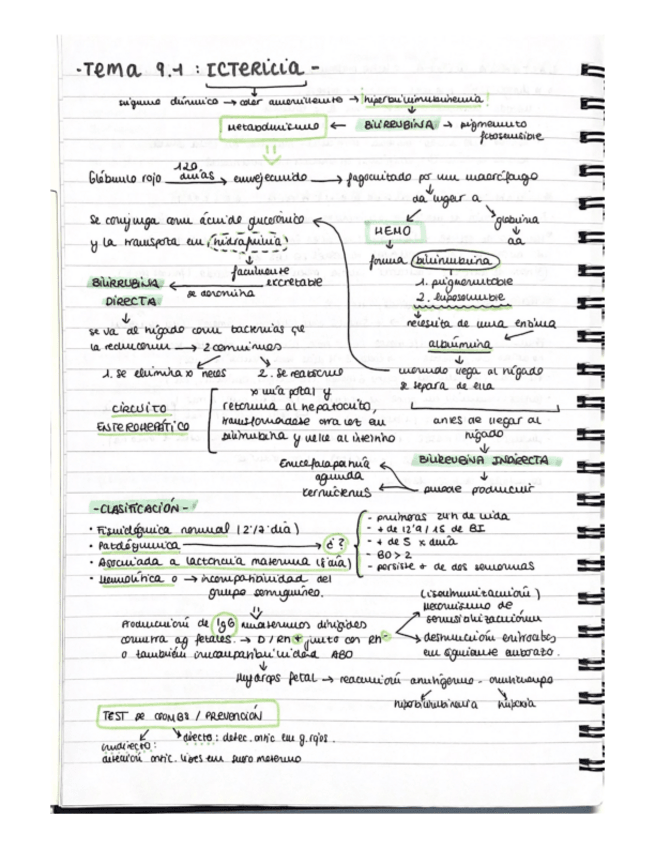 -TEMA 9.1 : ICTERICIA -
signo clínico → color amarillento → hiperbilirrubinemia
Metabolismo ← BILIRRUBINA → pigmento
fotosensible
Glóbulo rojo 120 días → envejecido → fagocitado por un macrófago
da lugar a
HEMO
globina
aa
forma bilirrubina
1. pigmentable
2. liposoluble
necesita de una enzima
albúmina
cuando llega al hígado
se separa de ella
antes de llegar al
hígado
BILIRRUBINA INDIRECTA
puede producir
Encefalopatía
aguda
Kernicterus
Se conjuga con ácido glucorónico
y la transporta en (hidrofílica)
facilmente
excretable
se denomina
BILIRRUBINA
DIRECTA
se va al hígado con bacterias que
la reducen → 2 caminos
1. se elimina x heces
2. se reabsorbe
CIRCUITO
ENTEROHEPÁTICO
x vía portal y
retorna al hepatocito,
transformándose otra vez en
bilirrubina y vuelve al intestino
-CLASIFICACIÓN-
• Fisiológica normal (2º/7 día)
• Patológica → ¿?
• Asociada a lactancia materna (8 día)
• Hemolítica o → incompatibilidad del
grupo sanguíneo.
- primeras 24h de vida
- + de 12'9 / 15 de BI
- + de 5 x día
- BD > 2
- persiste + de dos semanas
Producción de IgG maternos dirigidos
contra ag fetales. → D / Rh + junto con Rh -
o también incompatibilidad ABO
(isoinmunización)
mecanismo de
sensibilización
destrucción eritrocitos
en siguiente embarazo.
Hydrops fetal → reacción antígeno - anticuerpo
hiperbilirrubinemia
hipoxia
TEST DE COOMBS / PREVENCIÓN
indirecto:
detección antic. libres en suero materno
directo: detec. antic en g. rojos.